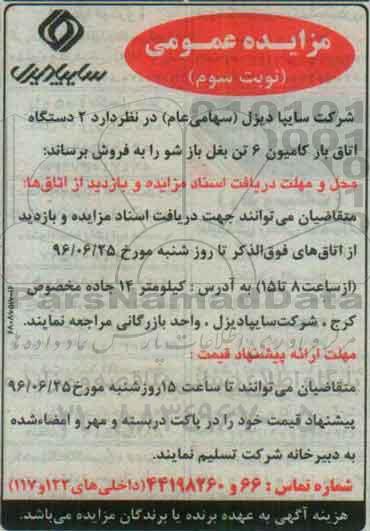 مزایده عمومی
(نوبت سوم)
سایپادیزل
شرکت سایپا دیزل (سهامی‌عام) در نظردارد ۲ دستگاه
اتاق بار کامیون ۶ تن بغل باز شو را به فروش برساند:
محل و مهلت دریافت اسناد مزایده و بازدید از اتاق‌ها:
متقاضیان می‌توانند جهت دریافت اسناد مزایده و بازدید
از اتاق‌های فوق‌الذکر تا روز شنبه مورخ ۹۶/۰۶/۲۵
(ازساعت ۸ تا۱۵) به آدرس : کیلومتر ۱۴ جاده مخصوص
کرج ، شرکت‌سایپادیزل ، واحد بازرگانی مراجعه نمایند.
مهلت ارائه پیشنهاد قیمت :
متقاضیان می‌توانند تا ساعت ۱۵روزشنبه مورخ۹۶/۰۶/۲۵
پیشنهاد قیمت خود را در پاکت دربسته و مهر و امضاءشده
به دبیرخانه شرکت تسلیم نمایند.
شماره تماس : ۶۶ و ۴۴۱۹۸۲۶۰(داخلی‌های ۱۲۲و۱۱۷)
هزینه آگهی به عهده برنده یا برندگان مزایده می‌باشد.
ParsNamadData